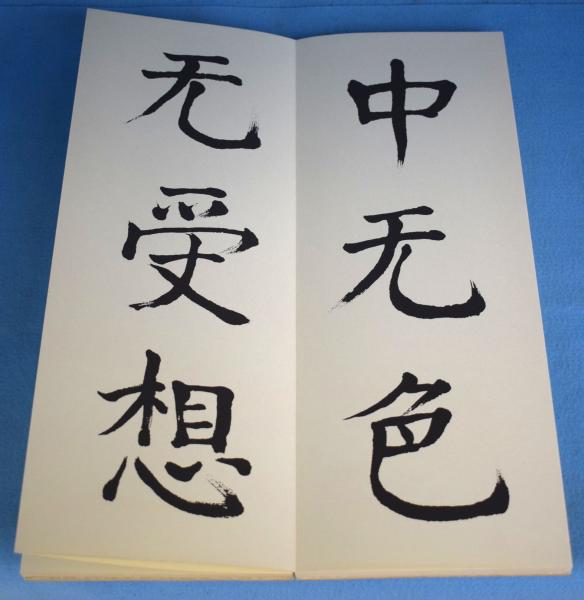 中无色
无受想